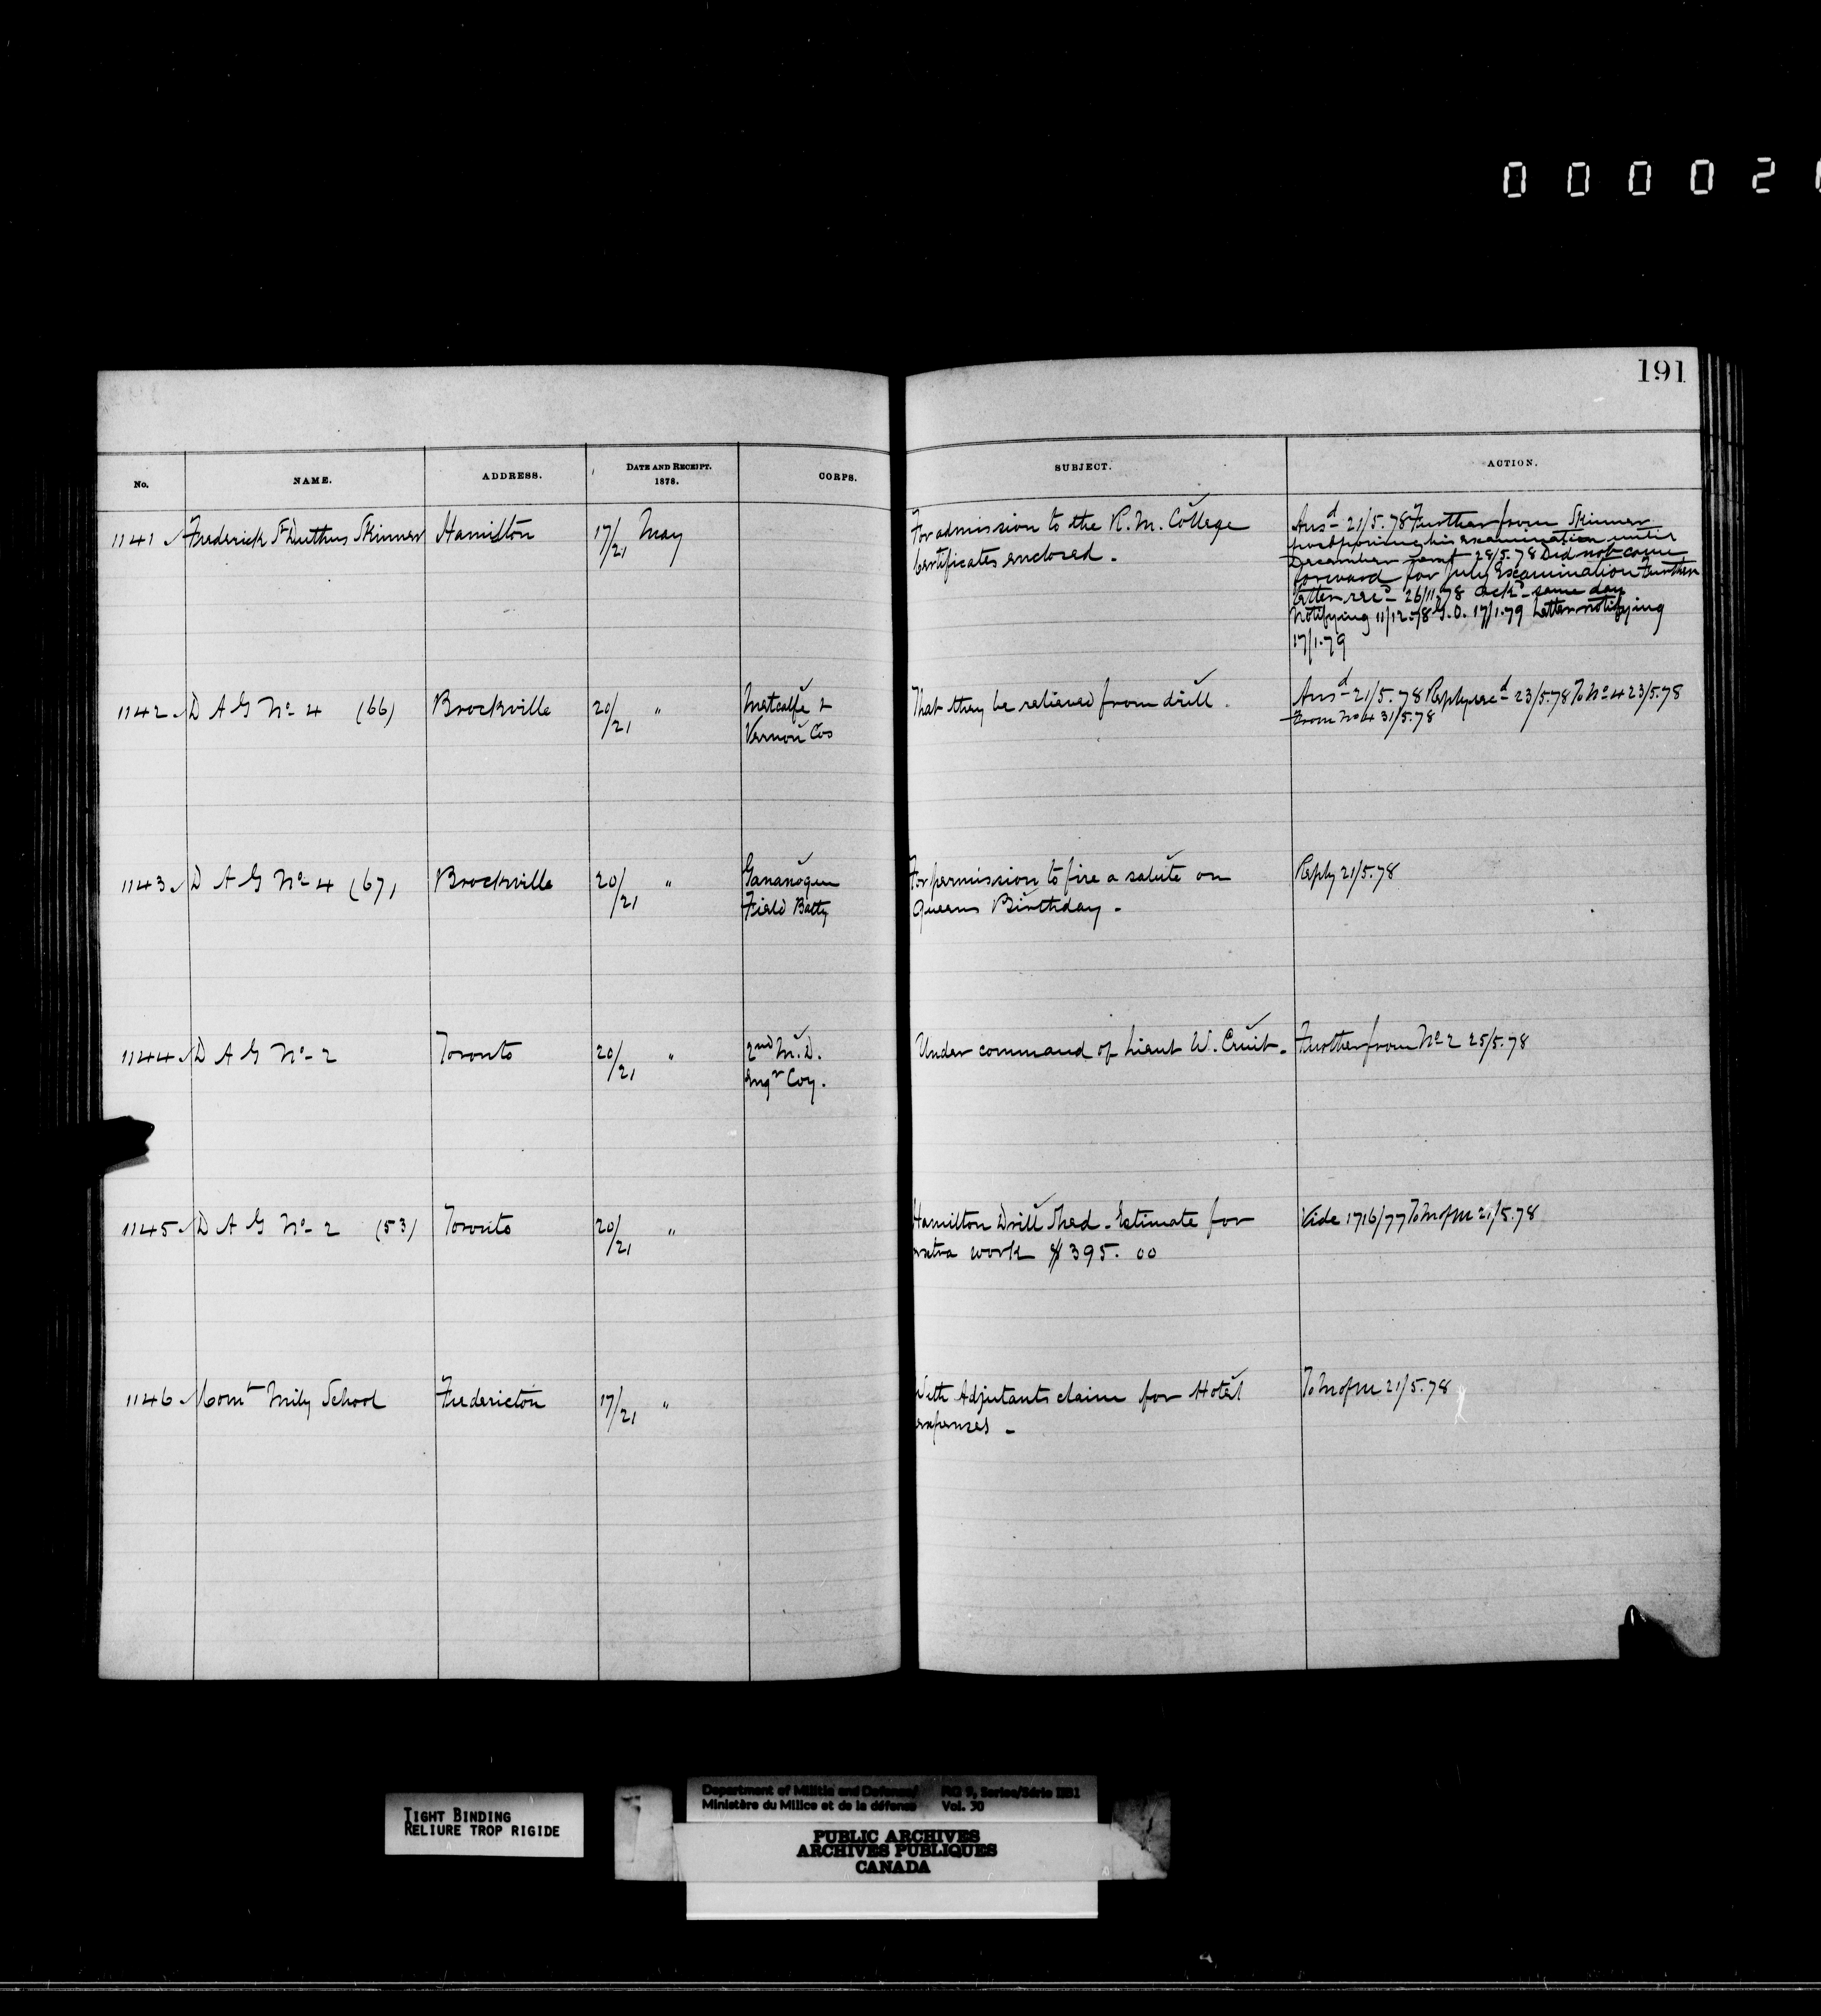 0 0 0 0 2
191
No. NAME. ADDRESS. DATE AND RECEIPT. 1878. CORPS. SUBJECT. ACTION.
1141 Frederick St Duthus Skinner Hamilton 17/21 May For admission to the R. M. College
Certificates enclosed.
Ansd 21/5.78 Further from Skinner
postponing his examination until
December next 28/5.78 Did not come
forward for July Examination Further
letter recd 26/11.78 ackd same day
Notifying 11/12.78 G.O. 17/1.79 Letter notifying
17/1.79
1142 D A G No 4 (66) Brockville 20/21 " Metcalfe &
Vernon Cos
That they be relieved from drill.
Ansd 21/5.78 Reply recd 23/5.78 To No 4 23/5.78
From No 4 31/5.78
1143 D A G No 4 (67) Brockville 20/21 " Gananoque
Field Batty
For permission to fire a salute on
Queens Birthday.
Reply 21/5.78
1144 D A G No 2 Toronto 20/21 " 2nd M. D.
Engr Coy.
Under command of Lieut W. Cruit.
Further from No 2 25/5.78
1145 D A G No 2 (53) Toronto 20/21 "
Hamilton Drill Shed - Estimate for
extra work $395.00
Vide 1716/77 To M of M 21/5.78
1146 Comt Mily School Fredericton 17/21 "
With Adjutants claim for Hotel
expenses -
To M of M 21/5.78
TIGHT BINDING
RELIURE TROP RIGIDE
Department of Militia and Defence/ RG 9, Series/Série IIB1
Ministère du Milice et de la défense Vol. 30
PUBLIC ARCHIVES
ARCHIVES PUBLIQUES
CANADA